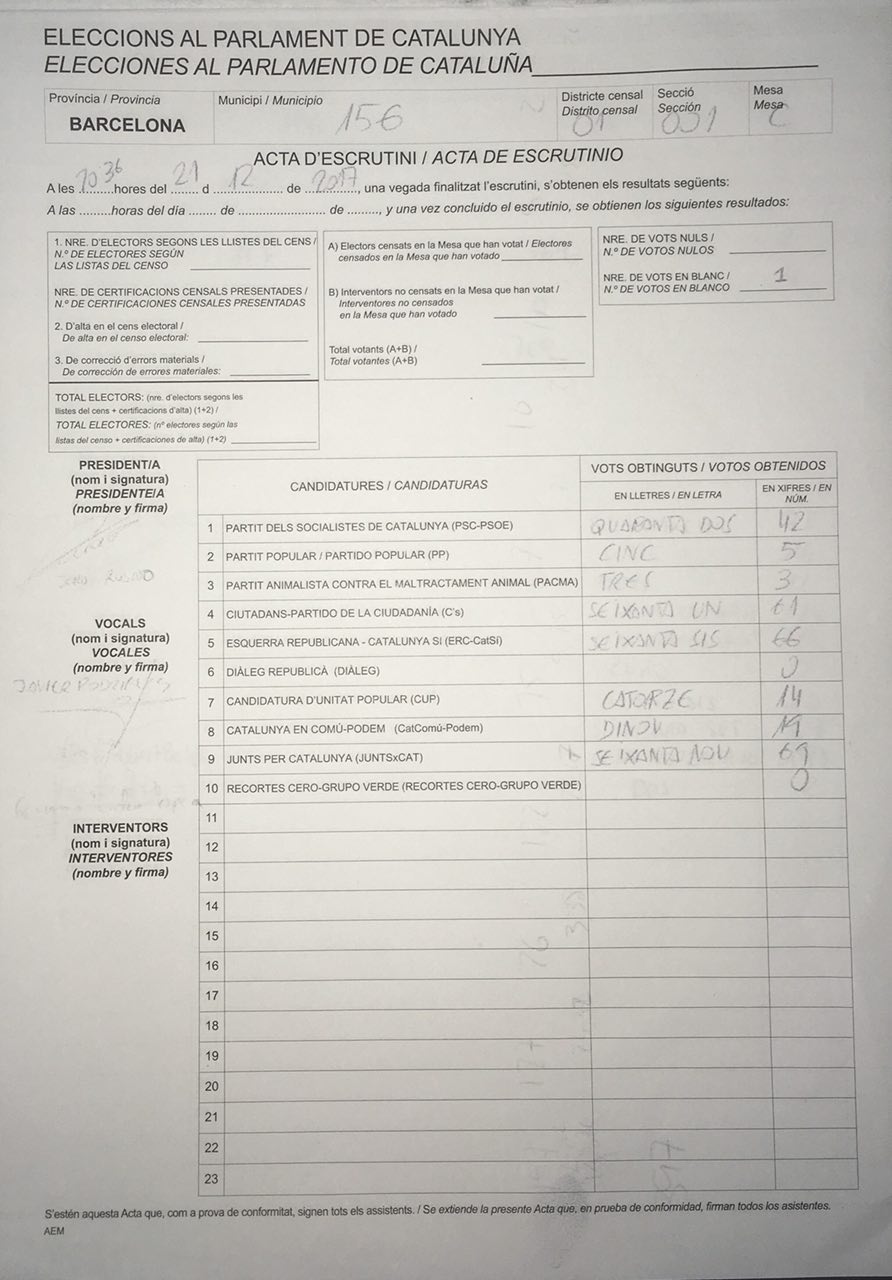 ELECCIONS AL PARLAMENT DE CATALUNYA
ELECCIONES AL PARLAMENTO DE CATALUÑA
Província / Provincia
BARCELONA
Municipi / Municipio
156
Districte censal
Distrito censal
01
Secció
Sección
031
Mesa
Mesa
C
ACTA D'ESCRUTINI / ACTA DE ESCRUTINIO
A les 2036 hores del 21 d 12 de 2017, una vegada finalitzat l'escrutini, s'obtenen els resultats següents:
A las .........horas del día ........ de .......................... de ........., y una vez concluido el escrutinio, se obtienen los siguientes resultados:
1. NRE. D'ELECTORS SEGONS LES LLISTES DEL CENS /
N.º DE ELECTORES SEGÚN
LAS LISTAS DEL CENSO
NRE. DE CERTIFICACIONS CENSALS PRESENTADES /
N.º DE CERTIFICACIONES CENSALES PRESENTADAS
2. D'alta en el cens electoral /
De alta en el censo electoral:
3. De correcció d'errors materials /
De corrección de errores materiales:
TOTAL ELECTORS: (nre. d'electors segons les
llistes del cens + certificacions d'alta) (1+2) /
TOTAL ELECTORES: (nº electores según las
listas del censo + certificaciones de alta) (1+2)
A) Electors censats en la Mesa que han votat / Electores
censados en la Mesa que han votado
B) Interventors no censats en la Mesa que han votat /
Interventores no censados
en la Mesa que han votado
Total votants (A+B) /
Total votantes (A+B)
NRE. DE VOTS NULS /
N.º DE VOTOS NULOS
NRE. DE VOTS EN BLANC /
N.º DE VOTOS EN BLANCO
1
PRESIDENT/A
(nom i signatura)
PRESIDENTE/A
(nombre y firma)
VOCALS
(nom i signatura)
VOCALES
(nombre y firma)
JAVIER
INTERVENTORS
(nom i signatura)
INTERVENTORES
(nombre y firma)
CANDIDATURES / CANDIDATURAS
VOTS OBTINGUTS / VOTOS OBTENIDOS
EN LLETRES / EN LETRA
EN XIFRES / EN
NÚM.
1 PARTIT DELS SOCIALISTES DE CATALUNYA (PSC-PSOE) QUARANTA DOS 42
2 PARTIT POPULAR / PARTIDO POPULAR (PP) CINC 5
3 PARTIT ANIMALISTA CONTRA EL MALTRACTAMENT ANIMAL (PACMA) TRES 3
4 CIUTADANS-PARTIDO DE LA CIUDADANÍA (C's) SEIXANTA UN 61
5 ESQUERRA REPUBLICANA - CATALUNYA SI (ERC-CatSí) SEIXANTA SIS 66
6 DIÀLEG REPUBLICÀ (DIÀLEG) 0
7 CANDIDATURA D'UNITAT POPULAR (CUP) CATORZE 14
8 CATALUNYA EN COMÚ-PODEM (CatComú-Podem) DINOU 19
9 JUNTS PER CATALUNYA (JUNTSxCAT) SEIXANTA NOU 69
10 RECORTES CERO-GRUPO VERDE (RECORTES CERO-GRUPO VERDE) 0
11
12
13
14
15
16
17
18
19
20
21
22
23
S'estén aquesta Acta que, com a prova de conformitat, signen tots els assistents. / Se extiende la presente Acta que, en prueba de conformidad, firman todos los asistentes.
AEM